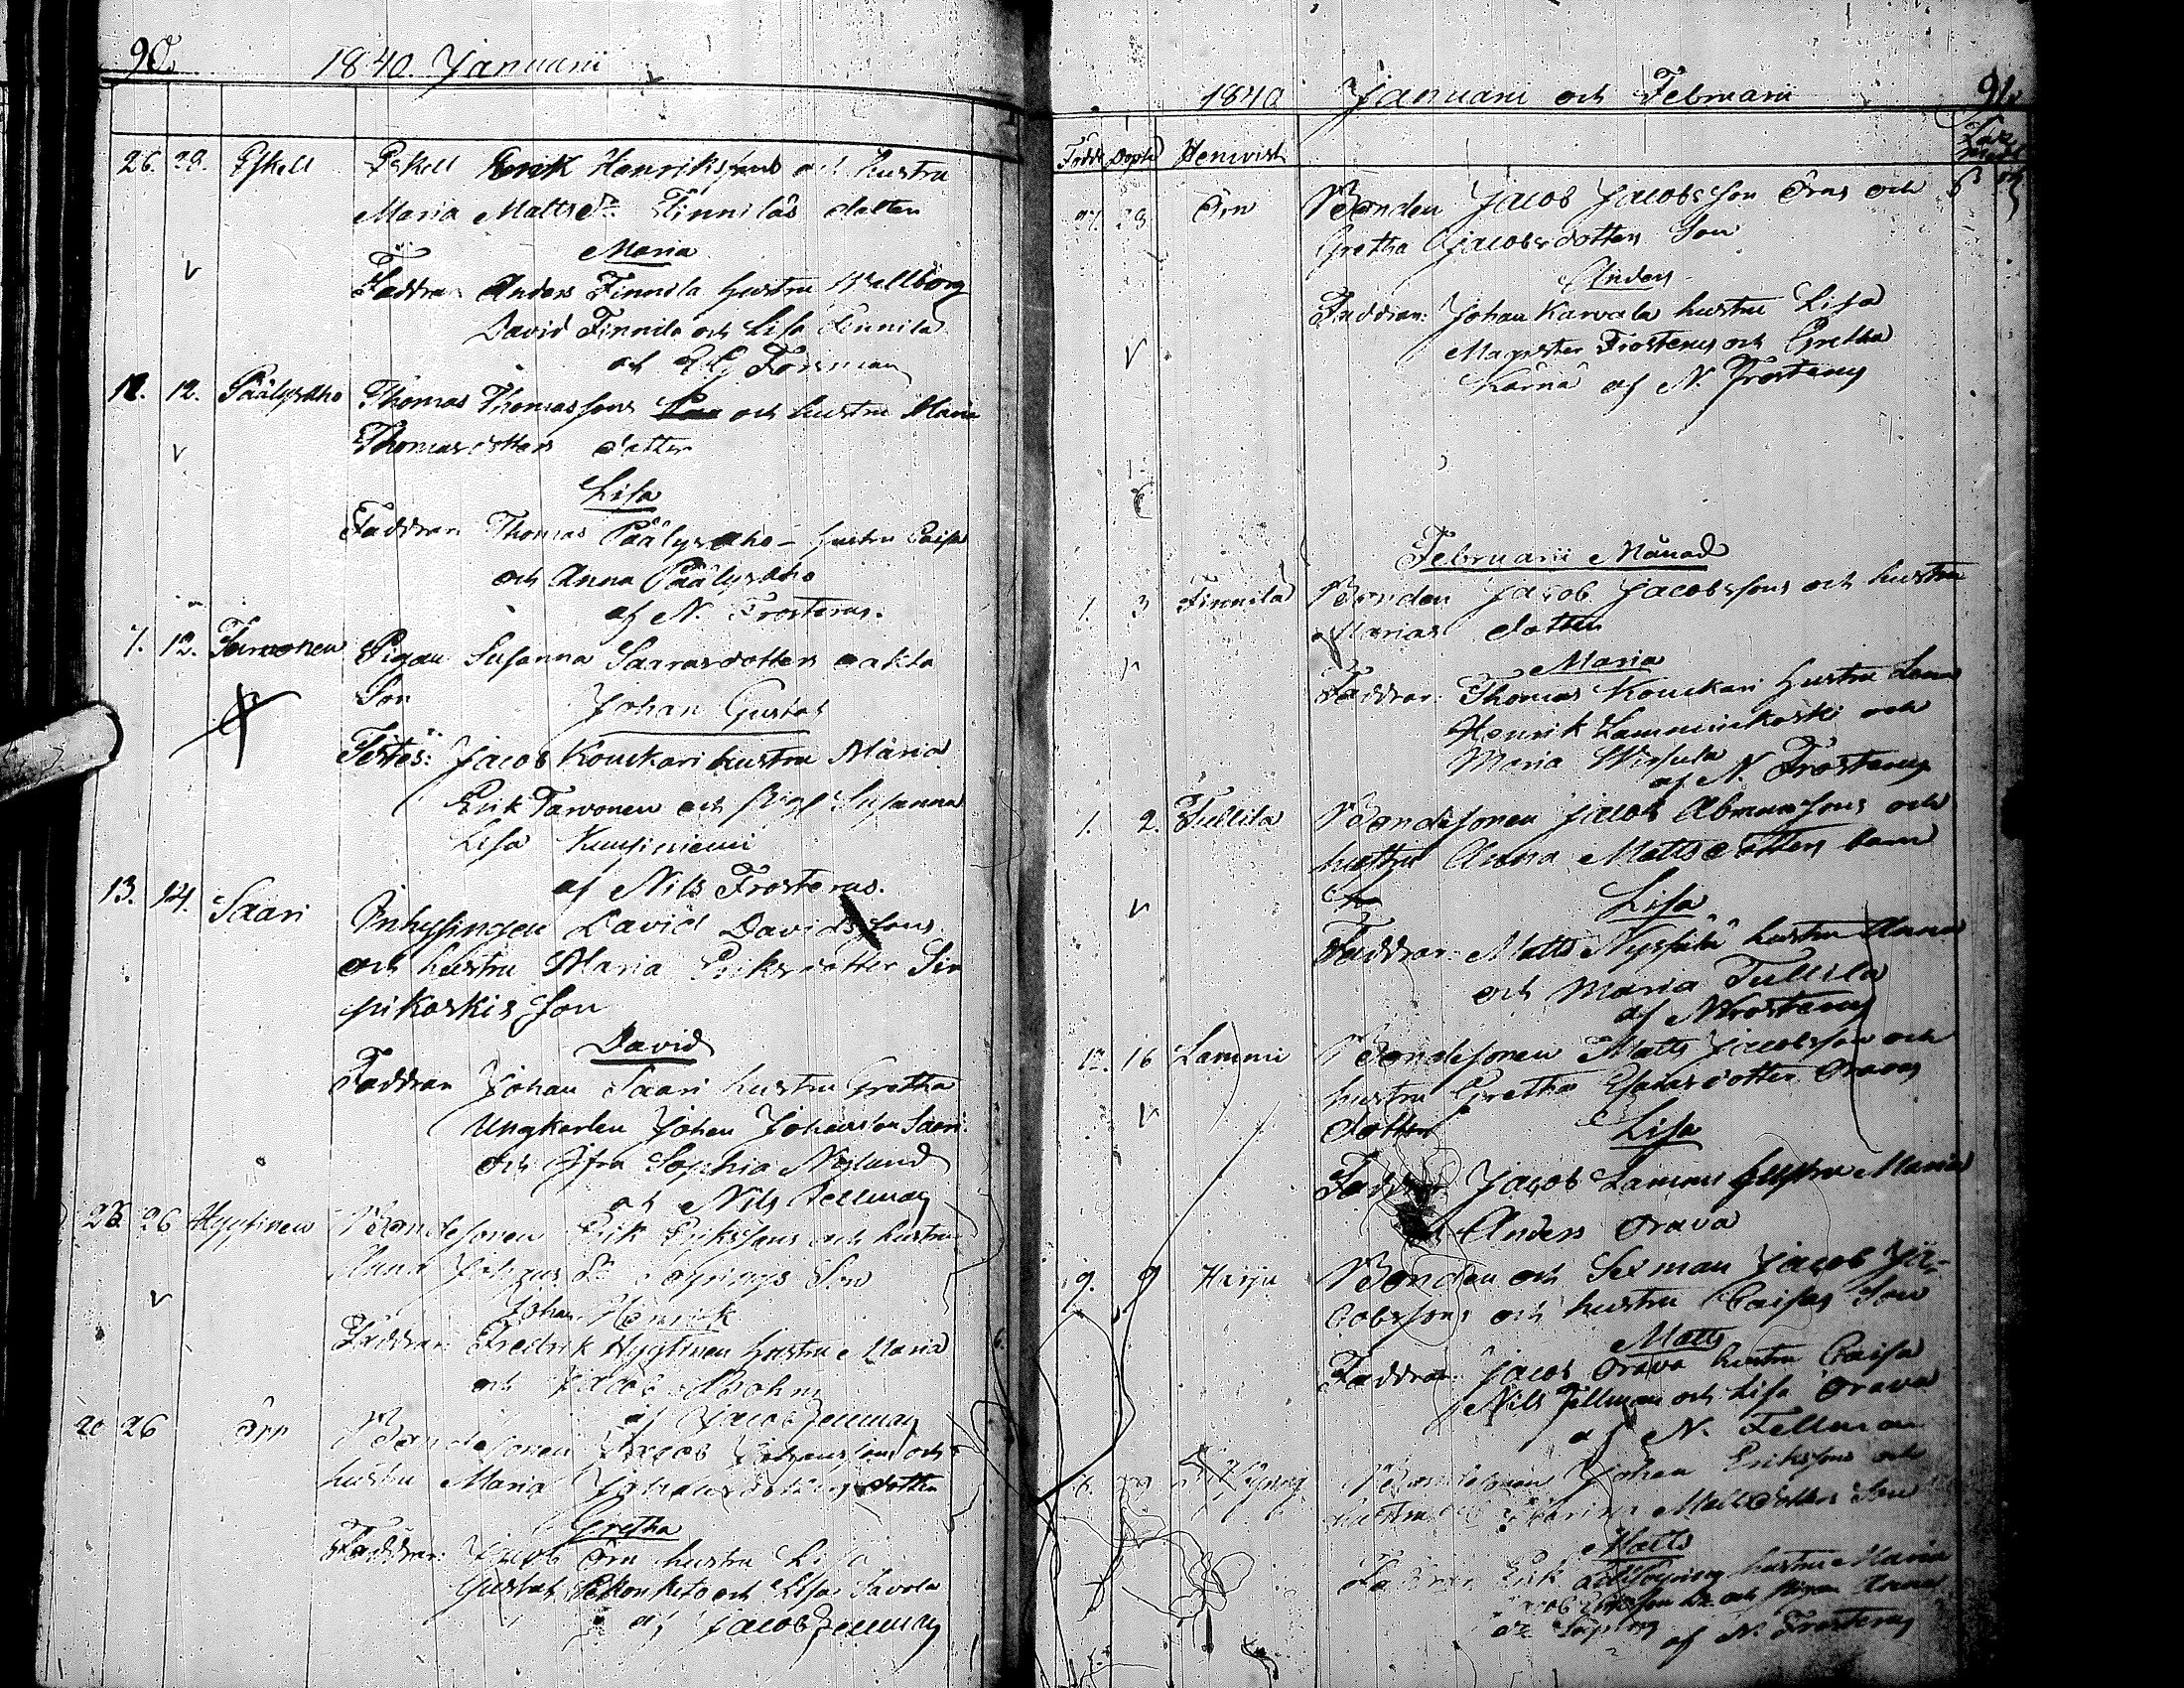 90.
1840. Januarii
26. 29. Eskell Eskell Erik Henrikssons och hustru
Maria Matts Dr Finniläs dotter
Maria
Faddrar Anders Finnila hustru Wallborg
David Finnila och Lisa Finnila
Forsman
12. 12. Päälysaho Thomas Thomassons och hustru Maria
Thomasdotters dotter
Lisa
Faddrar Thomas Päälysaho - hustru Caisa
och Anna Päälysaho
af N. Frosterus.
7. 12. Tarvonen Pigan Susanna Saarasdotters oäkta
Son Johan Gustaf
Testes: Jacob Kouckari hustru Maria
Erik Tarvonen och Susanna
Lisa Kuusiniemi
af Nils Frosterus.
13. 14. Saari Inhysingen David Davidssons
och hustru Maria Eriksdotter Sir
pikoskis Son
David
Faddrar Johan Saari hustru Gretha
Ungkarlen Johan Johansson Saari
och Jfru Sophia Nylund
af Nils Fellman
25. 26 Hyytinen Bondesonen Erik Erikssons och hustru
Anna Johans Dr Son
Johan Henrik
Faddrar: Fredrik Hyytinen hustru Maria
och Jacob
af Jacob Fellman
20 26 Örn Bondesonen Jacob Johanssons och
hustru Maria dotter
Gretha
Faddrar: Jacob Örn hustru Lisa
Gustaf och Lisa Savola
af Jacob Fellman
1840 Januarii och Februarii 91.
Födde Döpte Hemvist
27. 29 Örn Bonden Jacob Jacobsson Örns och
Gretha Jacobsdotters Son
Anders
Faddrar: Johan Karvala hustru Lisa
Magister Frosterus och Gretha
Kärnä af N. Frosterus
Februarii Månad
1. 3 Finnilä Bonden Jacob Jacobssons och hustru
Marias dotter
Maria
Faddrar: Thomas Kouckari hustru Lena
Henrik Lamminkoski och
Maria
af N. Frosterus
1. 2. Tullila Bondesonen Jacob Abramssons och
hustru Anna Mattsdotters barn
Lisa
Faddrar: Matts hustru Anna
och Maria Tullila
af N Frosterus
12. 16 Lammi Bondesonen Matts Jacobsson och
hustru Gretha Esaiasdotter Oravas
dotter Lisa
Faddrar Jacob Lammi hustru Maria
Anders Orava
9. 9 Harju Bonden och Sexman Jacob Ja-
cobssons och hustru Caisas Son
Matts
Faddrar: Jacob Orava hustru Caisa
Nils Fellman och Lisa Orava
af N. Fellman
Bondesonen Johan Erikssons och
hustru Mattsdotters Son
Matts
Faddrar Erik hustru Maria
och pigan Anna
af N. Frosterus